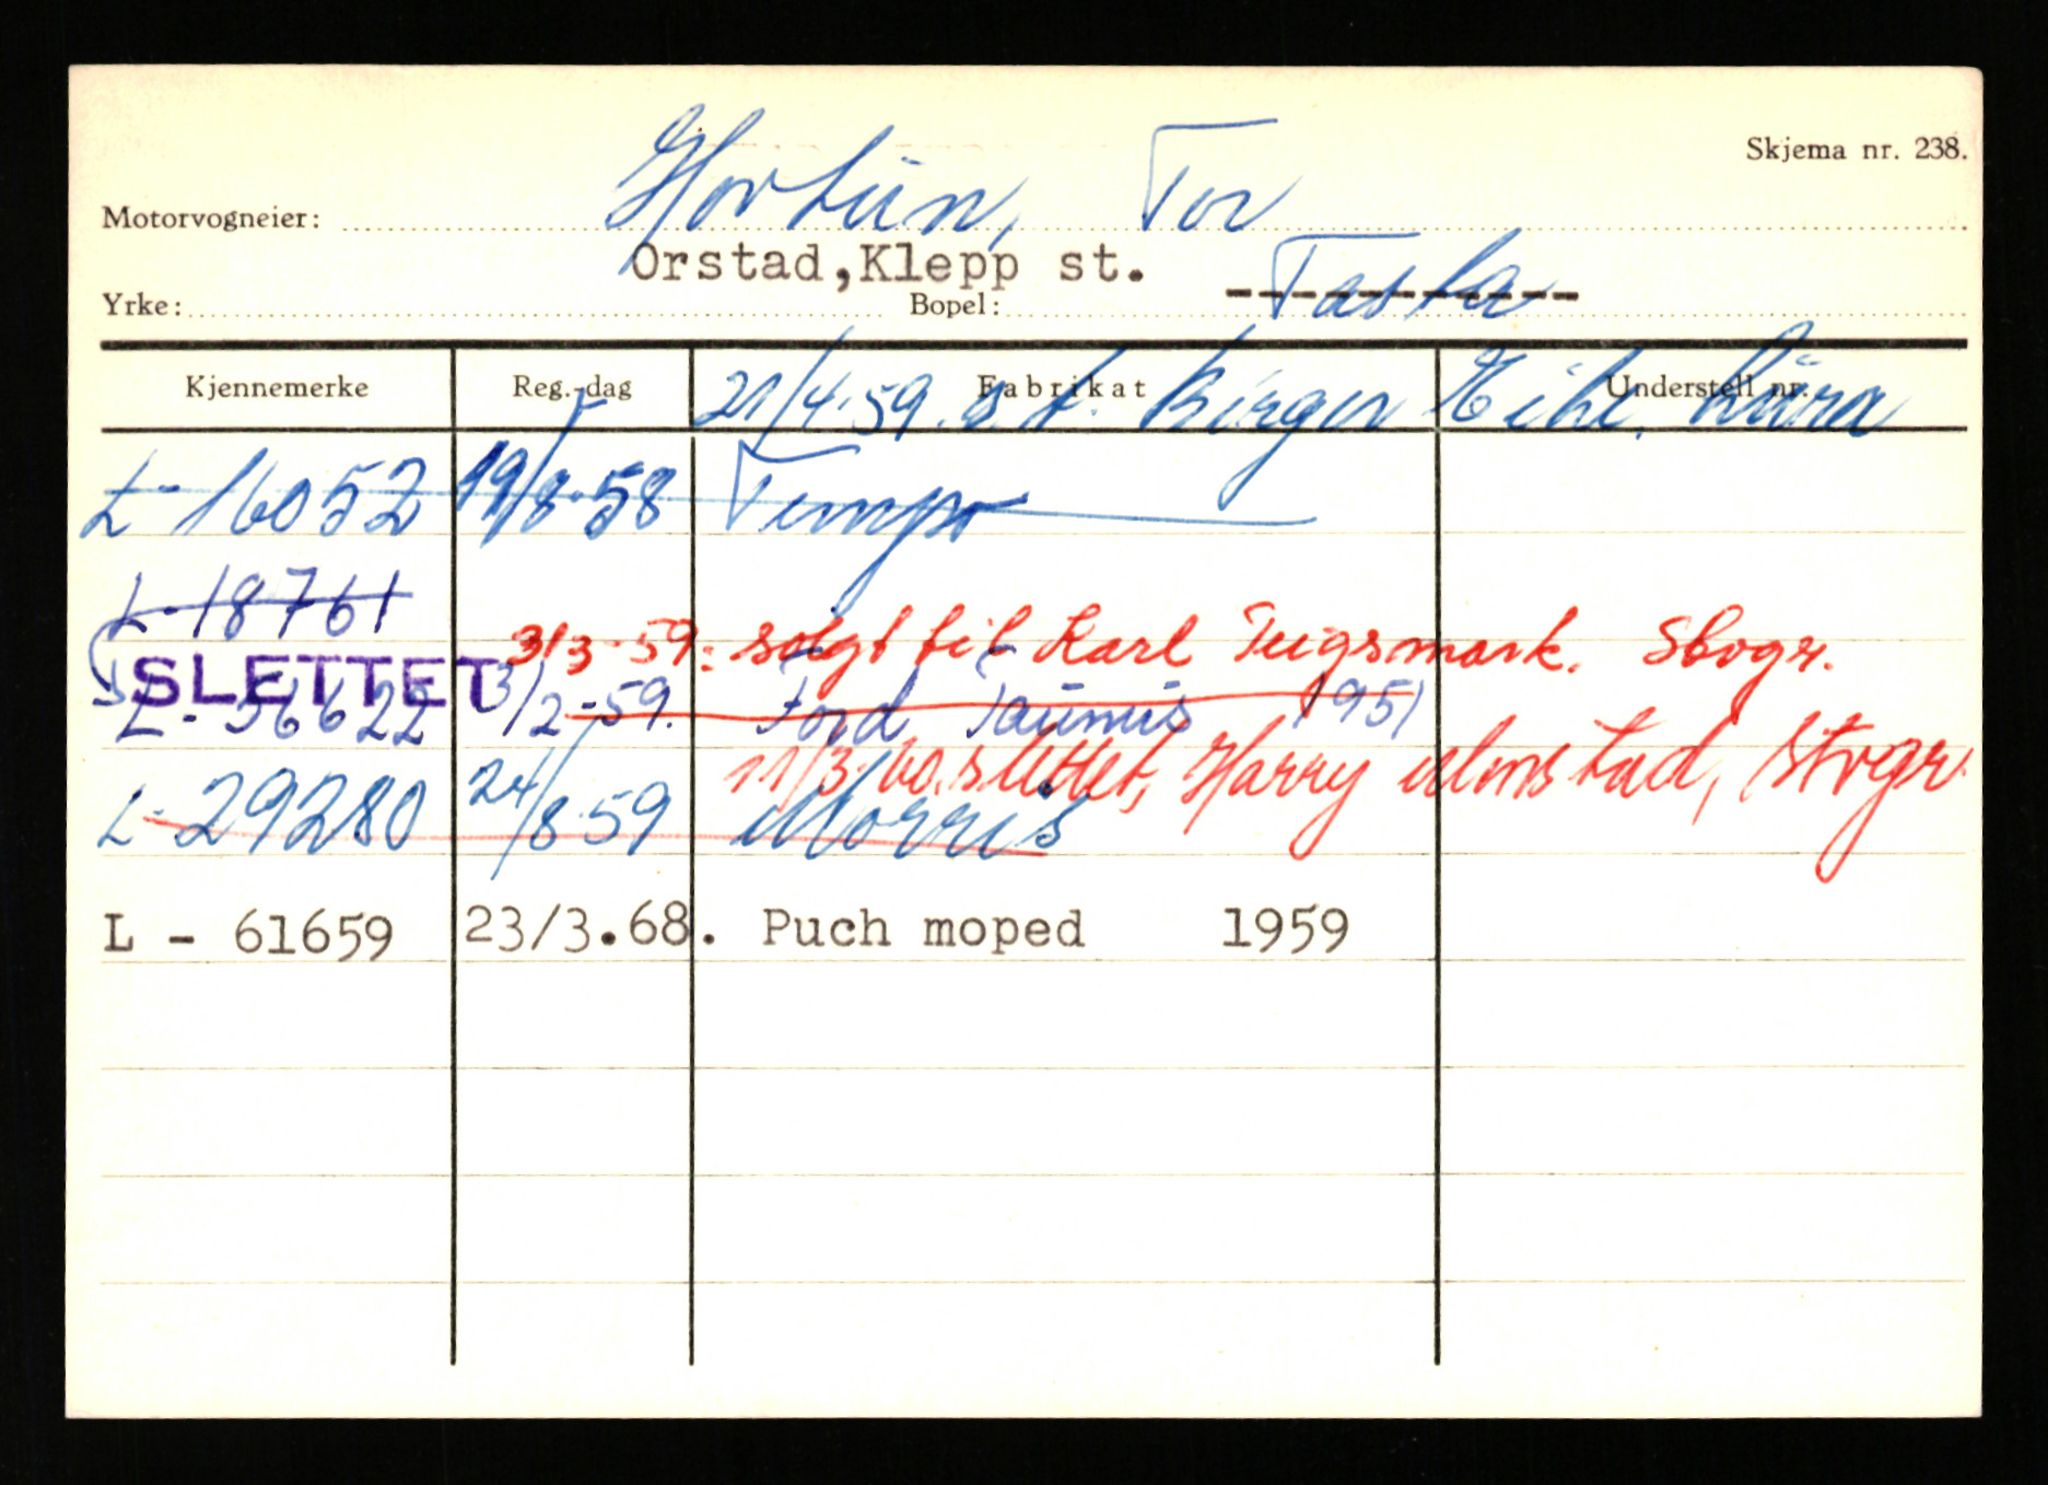 Skjema nr. 238.
Motorvogneier: Hortun, Tor
Orstad,Klepp st. ------------ Tasta
Yrke: Bopel:
Kjennemerke Reg.-dag Fabrikat Understell nr.
21/4.59. s.t. Birger Eike,
L-16052 19/8-58 Tempo
L-18761
3/3-59: solgt til Karl Teigsmark. Stvgr.
SLETTET
L-56622 3/2-59. Ford Taunus 1951
11/3-60. slettet, Harry Almstad, Stvgr.
L-29280 24/8 59 Morris
L - 61659 23/3.68. Puch moped 1959